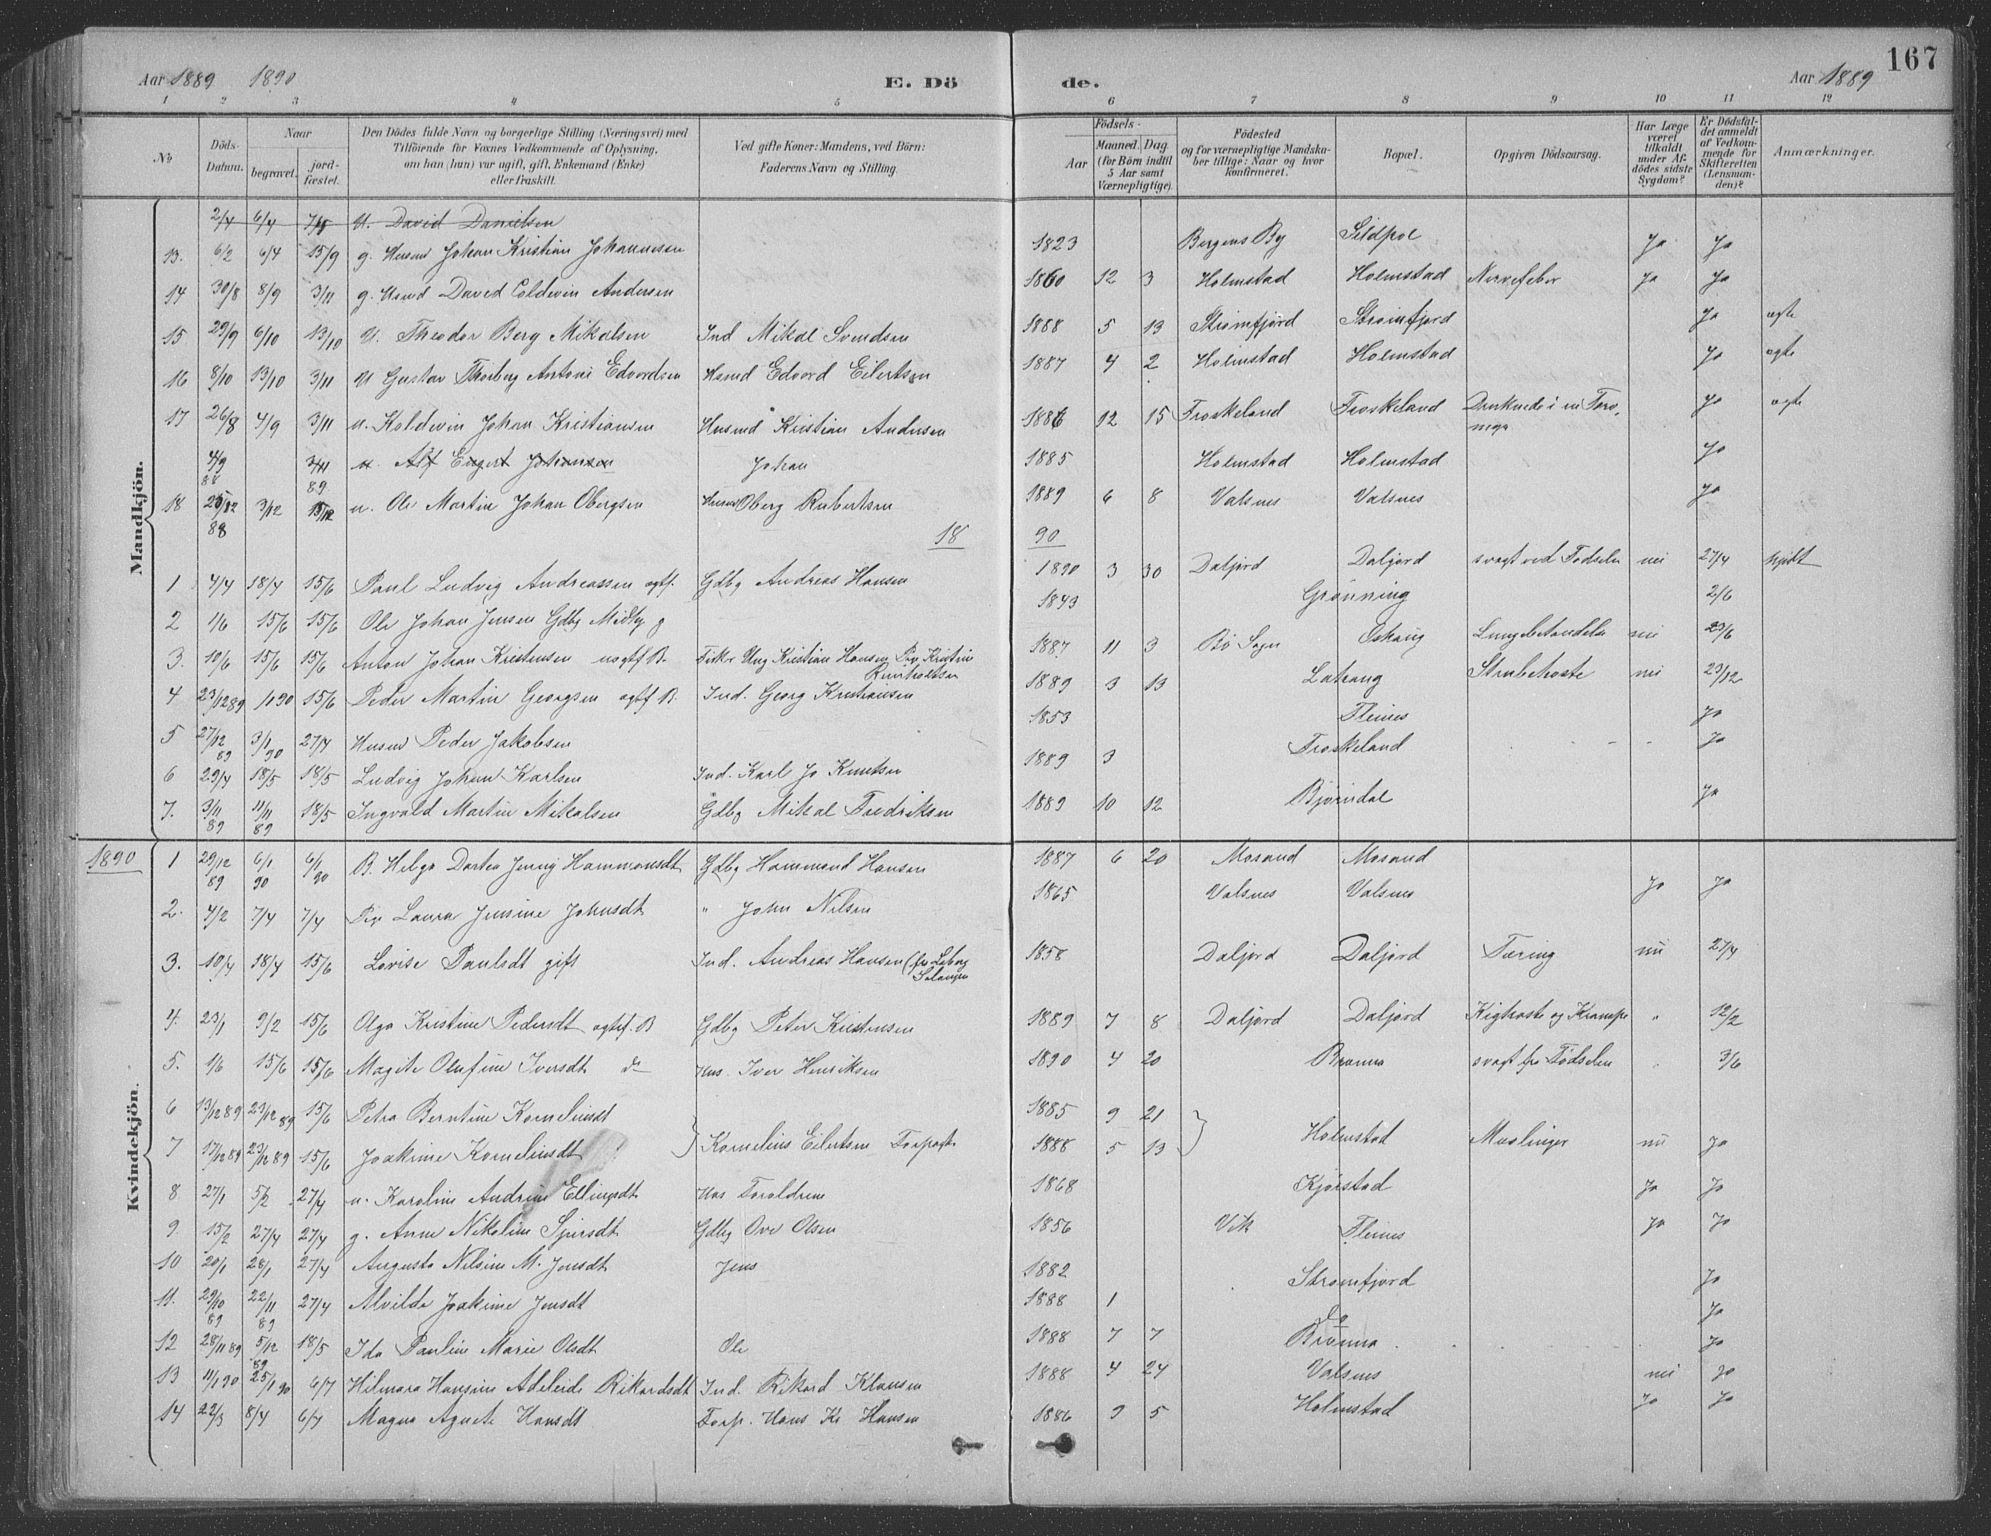 167
Aar 1889 1890
E. Dö
de.
Aar 1889
1 2 3 4 5 6 7 8 9 10 11 12
No
Döds-
Datum.
Naar
begravet.
jord-
fæstet.
Den Dödes fulde Navn og borgerlige Stilling (Næringsvei) med
Tilföiende for Voxnes Vedkommende af Oplysning,
om han (hun) var ugift, gift, Enkemand (Enke)
eller fraskilt.
Ved gifte Koner: Mandens, ved Börn:
Faderens Navn og Stilling.
Födsels-
Aar
Maaned. Dag
(for Börn indtil
5 Aar samt
Værnepligtige).
Födested
og for værnepligtige Mandska-
ber tillige: Naar og hvor
konfirmeret.
Bopæl.
Opgiven Dödsaarsag.
Har Læge
været
tilkaldt
under Af-
dödes sidste
Sygdom?
Er Dödsfal-
det anmeldt
af Vedkom-
mende for
Skifteretten
(Lensman-
den)?
Anmærkninger.
Mandkjön.
2/4 6/4 U. David Danielsen
13. 6/2 6/4 15/9 g. Husmd Johan Kristian Johannesen 1823 Bergens By Sildpol Ja Ja
14 30/8 8/9 3/11 g. Husmd David Coldevin Andersen 1860 12 3 Holmstad Holmstad Nervefeber Ja Ja
15 29/9 6/10 13/10 U. Theodor Berg Mikalsen Ind Mikal Svendsen 1888 5 13 Strømfjord Strømfjord Ja ægte
16 8/10 13/10 3/11 U Gustav Thorberg Antoni Edvardsen Husmd Edvard Eilertsen 1887 4 2 Holmstad Holmstad Ja ægte
17 26/8 4/9 3/11 u. Koldevin Johan Kristiansen Husmd Kristian Andersen 1886 12 15 Froskeland Froskeland Druknede i en Ja ægte
4/9 88 3/11 89 u. Alf Engert Johansen Johan 1885 Holmstad Holmstad Ja
18 88 3/12 15/12 u. Ole Martin Johan Obergsen Husmd Oberg Rubertsen 1889 6 8 Valsnes Valsnes Ja
18 90
1 4/4 18/4 15/6 Paul Ludvig Andreassen ægtf. Gdbg Andreas Hansen 1890 3 30 Daljord Daljord svagt ved Fødselen nei 27/4 hjdt
2 1/6 15/6 15/6 Ole Johan Jensen Gdbg Midby g 1843 Grønning 2/6
3. 10/6 15/6 15/6 Anton Johan Kristensen uægtf B. Fisker Ung Kristian Hansen Pig Kristin 1887 11 3 Bø Sogn Oshaug Lungebetændelse nei 23/6
4 23/12 89 1/1 90 15/6 Peder Martin Georgsen ægtf B. Ind. Georg Kristiansen 1889 3 13 Latrang Strubehoste nei 23/12
5 27/12 89 3/1 90 27/4 Husmd Peder Jakobsen 1853 Fleines Ja
6 29/4 18/5 18/5 Ludvig Johan Karlsen Ind. Karl Jo Knutsen 1889 3 Froskeland Ja
7. 3/11 89 11/11 89 18/5 Ingvald Martin Mikalsen Gdbg Mikal Fredriksen 1889 10 12 Bjørndal Ja
Kvindekjön.
1890
1 29/12 89 6/1 90 6/1 90 B. Helga Dortea Jenny Hammondsdt Gdbg Hammond Hansen 1887 6 20 Mosand Mosand
2. 4/2 7/4 7/4 Pig Laura Jensine Johnsdt " John Nilsen 1865 Valsnes Valsnes Ja Ja
3. 10/4 18/4 15/6 Lovise Paulsdt gift Ind. Andreas Hansen (fra Salangen 1858 Daljord Daljord Tæring nei 27/4
4. 23/1 9/2 15/6 Olga Kristine Pedersdt ægtef. B Gdbg Peter Kristensen 1889 7 8 Daljord Daljord Kighoste og Krampe " 12/2
5. 1/6 15/6 15/6 Magite Olufine Iversdt do Hus. Iver Henriksen 1890 4 20 Brønna svagt fra Fødselen " 3/6
6 13/12 89 23/12 89 15/6 Petra Berntine Kornelinsdt 1885 9 21
7 17/12 89 23/12 89 15/6 Joakime Kornelinsdt } Kornelius Eilertsen Forpagter 1888 5 13 } Holmstad Mæslinger nei Ja
8 27/1 5/2 27/4 u. Karoline Andrine Ellingsdt Hos Forældrene 1868 Kjørstad Ja Ja
9 15/2 27/4 27/4 g. Anne Nikoline Sjursdt Gdbg Ove Olsen 1856 Vik Fleines Ja Ja
10 20/1 28/1 27/4 Augusta Nilsine M. Jensdt Jens 1882 Strømfjord Ja
11. 29/10 89 22/11 89 27/4 Alvilde Joakime Jensdt 1888 1 Do Ja
12 28/11 89 5/12 89 18/5 Ida Pauline Marie Olsdt Ole 1888 7 7 Brønna Ja
13 11/1 90 25/1 90 6/7 Hilmara Hansine Adeleide Rikardsdt Ind. Rikard Klausen 1888 4 24 Valsnes nei Ja
14 22/3 8/4 6/7 Magna Agnete Hansdt Forp. Hans Kr Hansen 1886 9 5 Holmstad Ja Ja